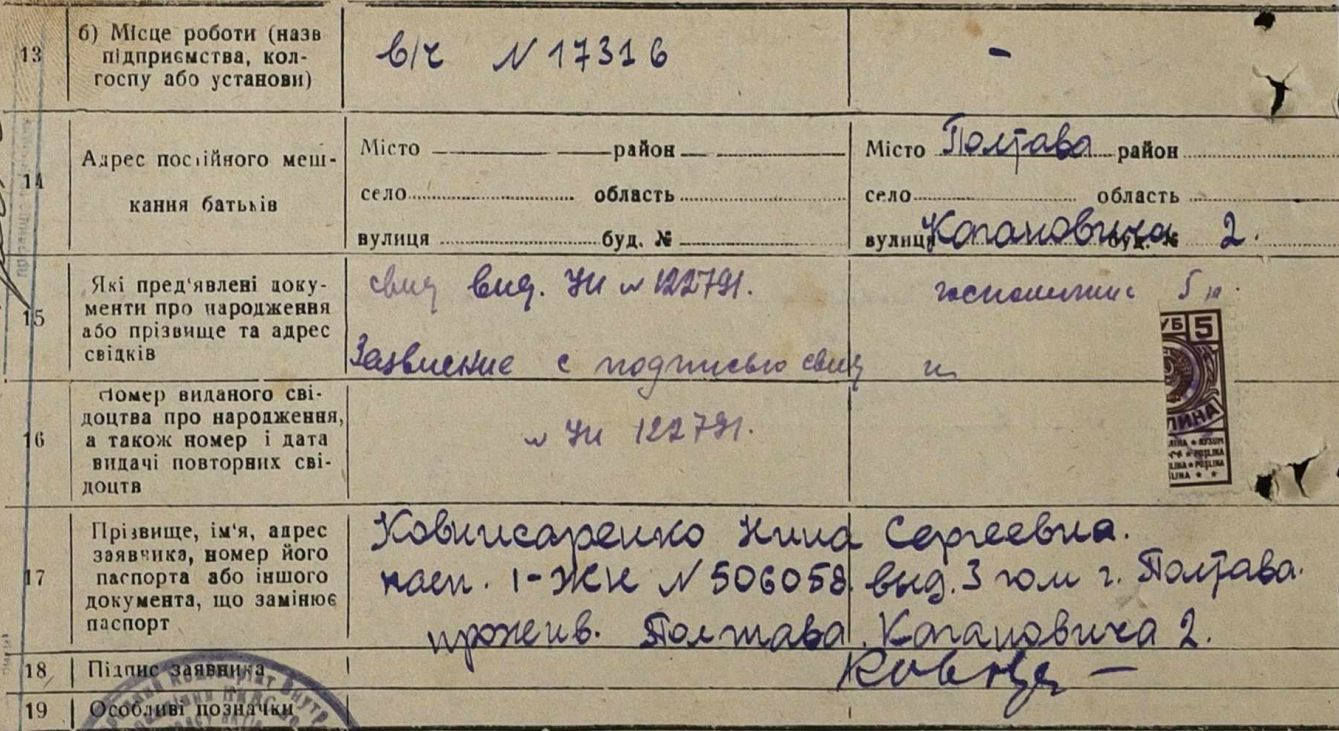 13 б) Місце роботи (назв
підприємства, кол-
госпу або установи)
в/ч N 17316 -
14 Адрес постійного меш-
кання батьків
Місто район
село область
вулиця буд. №
Місто Полтава район
село область
вулиця Кагановича буд. № 2.
15 Які пред'явлені доку-
менти про народження
або прізвище та адрес
свідків
выд. N 122791. госпошлина 5 р.
с подписью
УБ 5
16 Номер виданого сві-
доцтва про народження,
а також номер і дата
видачі повторних сві-
доцтв
N 122791.
17 Прізвище, ім'я, адрес
заявника, номер його
паспорта або іншого
документа, що замінює
паспорт
Нина Сергеевна.
пасп. I-ЖК N 506058. выд. 3 гом г. Полтава.
прожив. Полтава. Кагановича 2.
18 Підпис заявника
19 Особливі позначки